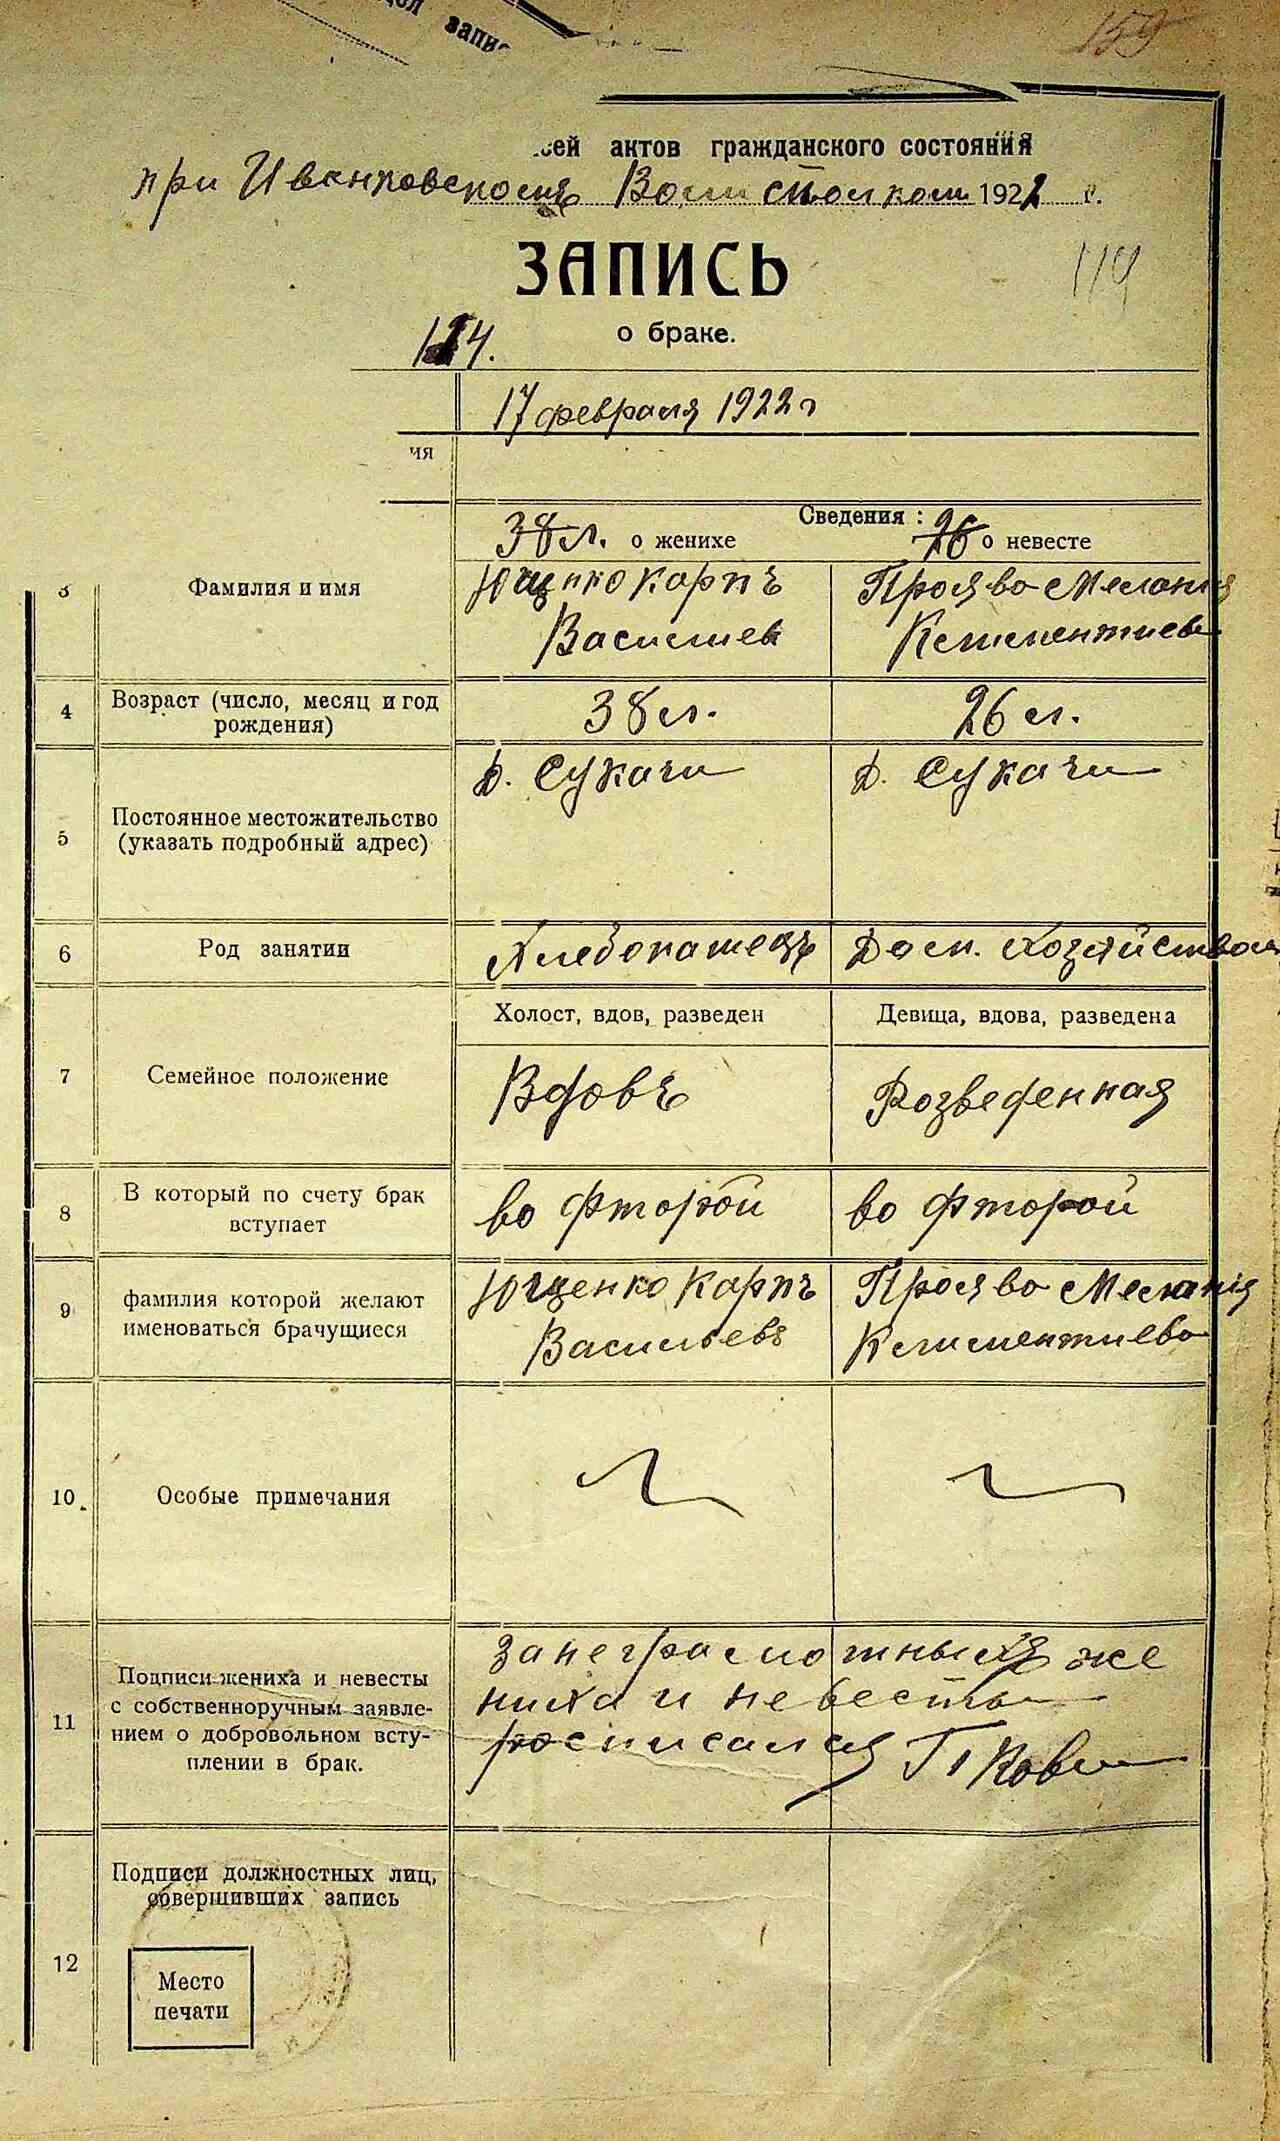 запи
159
сей актов гражданского состояния
при Иванковскомъ Волисполкоме 1922 г.
ЗАПИСЬ
119
о браке.
124.
17 февраля 1922 г
ия
Сведения :
38 л. о женихе 26 о невесте
3 Фамилия и имя Ющенко Карпъ Василиев Проява Мелания Климентиева
4 Возраст (число, месяц и год рождения) 38 л. 26 л.
5 Постоянное местожительство (указать подробный адрес) д. Сукачи д. Сукачи
6 Род занятии Хлебопашецъ Дом. Хозяйством
Холост, вдов, разведен Девица, вдова, разведена
7 Семейное положение Вдовъ Розведенная
8 В который по счету брак вступает во фторой во фторой
9 фамилия которой желают именоваться брачущиеся Ющенко Карпъ Васильевъ Проява Меланія Климентиева
10 Особые примечания
11 Подписи жениха и невесты с собственноручным заявлением о добровольном вступлении в брак.
за неграмотныхъ же
ниха и невесты
росписался
12 Подписи должностных лиц, совершивших запись
Место
печати